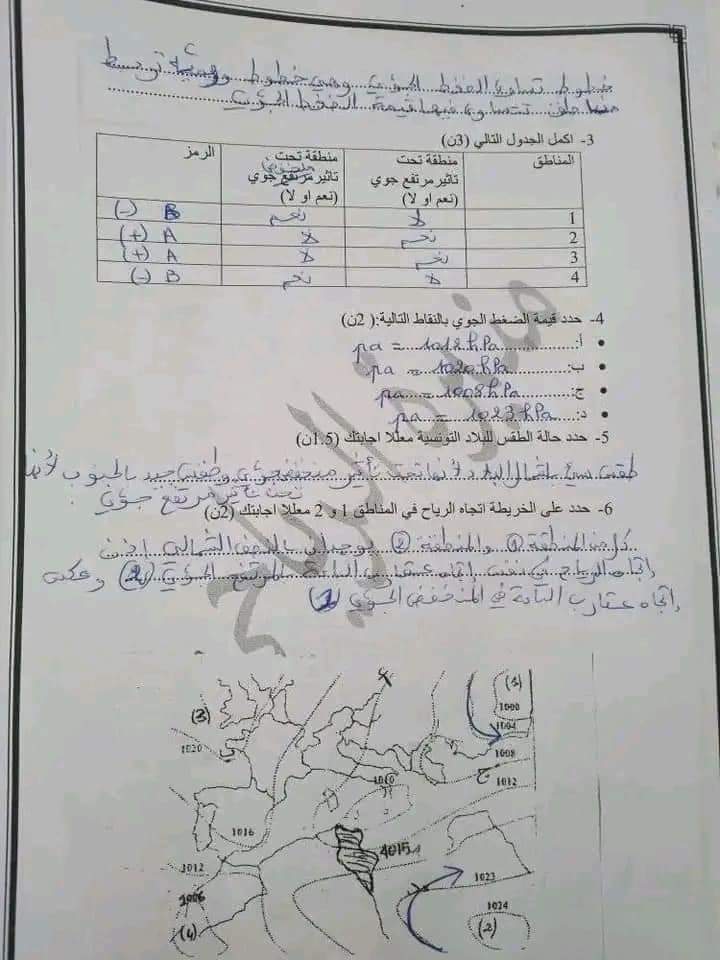 خطوط تساوي الضغط الجوي وهي خطوط وهمية تربط
مناطق تتساوى فيها قيمة الضغط الجوي
3- اكمل الجدول التالي (3ن)
المناطق | منطقة تحت تاثير مرتفع جوي (نعم او لا) | منطقة تحت تاثير مرتفع منخفض جوي (نعم او لا) | الرمز
1 | لا | نعم | B (-)
2 | نعم | لا | A (+)
3 | نعم | لا | A (+)
4 | لا | نعم | B (-)
4- حدد قيمة الضغط الجوي بالنقاط التالية:( 2ن)
• أ: pa = 1012 hPa
• ب: pa = 1020 hPa
• ج: pa = 1008 hPa
• د: pa = 1023 hPa
5- حدد حالة الطقس للبلاد التونسية معللا اجابتك (1.5ن)
طقس سيء بشمال البلاد لأنها تحت تأثير منخفض جوي وطقس جيد بالجنوب لأنها
تحت تأثير مرتفع جوي
6- حدد على الخريطة اتجاه الرياح في المناطق 1 و 2 معللا اجابتك (2ن)
كل من المنطقة 1 والمنطقة 2 يوجدان بالنصف الشمالي إذن
اتجاه الرياح في نفس اتجاه عقارب الساعة المرتفع الجوي (2) وعكس
اتجاه عقارب الساعة في المنخفض الجوي (1)
منيرة الرماح
(3)
(1)
1000
1004
1020
1008
ج
1010
1012
1016
1015
1012
1023
1006
1024
(4)
(2)